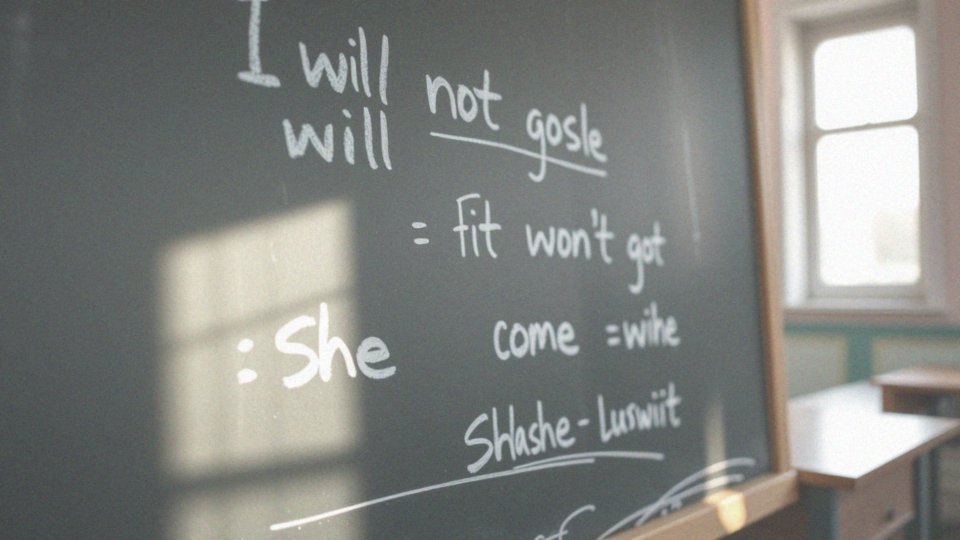 I will not gosle
will
= fit won't got
: She come = wihe
Shlashe - Luswiit